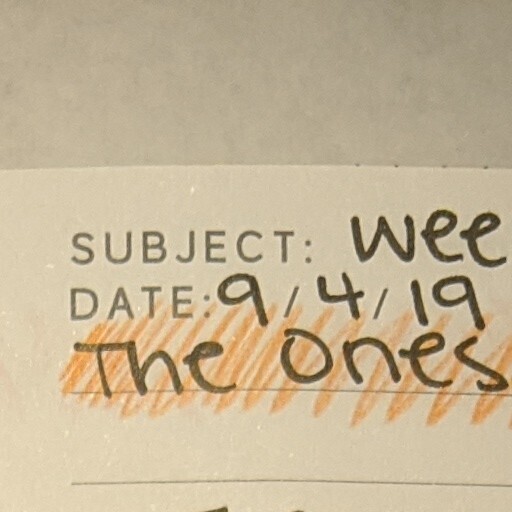 SUBJECT: wee
DATE: 9/4/19
The Ones